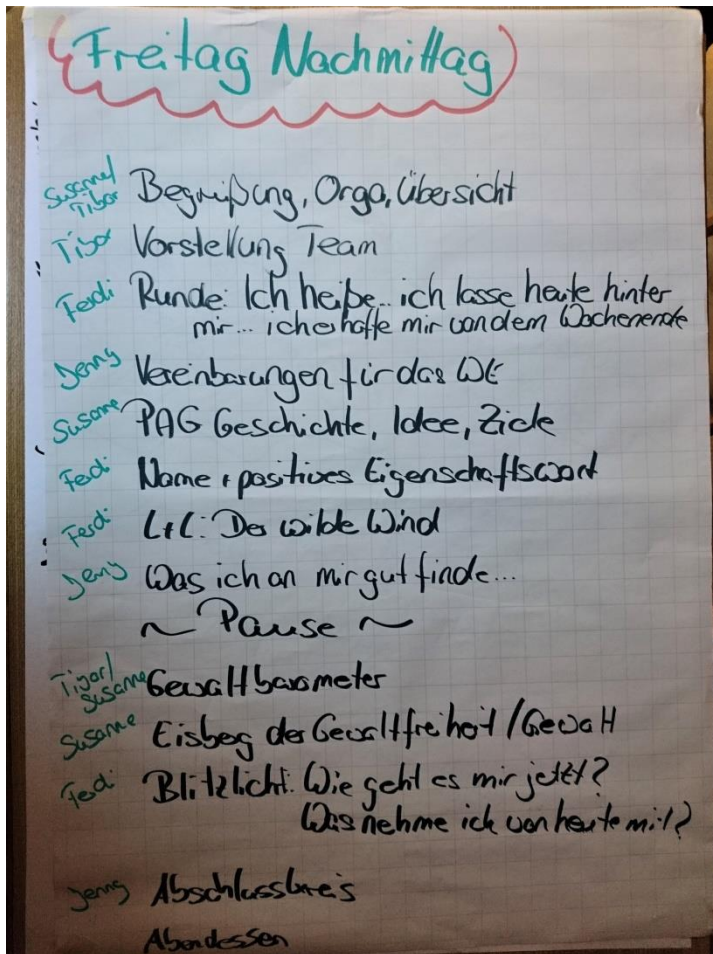 Freitag Nachmittag
Susanne/ Tibor Begrüßung, Orga, Übersicht
Tibor Vorstellung Team
Ferdi Runde: Ich heiße... ich lasse heute hinter
mir... ich erhoffe mir von dem Wochenende
Jenny Vereinbarungen für das WE
Susanne PAG Geschichte, Idee, Ziele
Ferdi Name + positives Eigenschaftswort
Ferdi L+L: Der wilde Wind
Jenny Was ich an mir gut finde...
~ Pause ~
Tibor/ Susanne Gewaltbarometer
Susanne Eisberg der Gewaltfreiheit / Gewalt
Ferdi Blitzlicht: Wie geht es mir jetzt?
Was nehme ich von heute mit?
Jenny Abschlusskreis
Abendessen